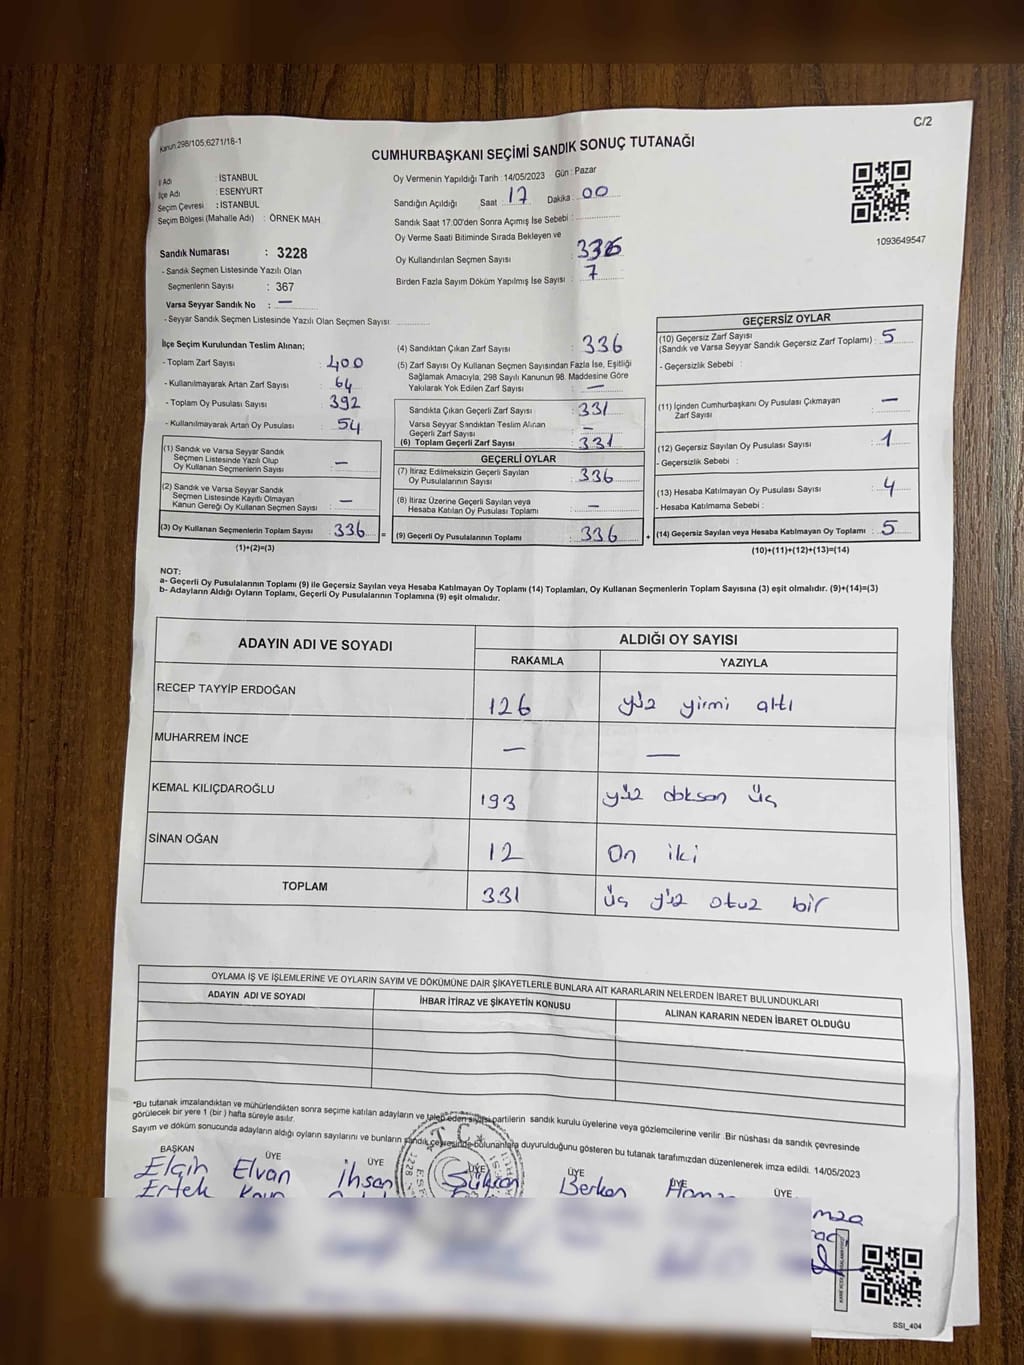 C/2
Kanun 298/105;6271/16-1
CUMHURBAŞKANI SEÇİMİ SANDIK SONUÇ TUTANAĞI
İl Adı : İSTANBUL
İlçe Adı : ESENYURT
Seçim Çevresi : İSTANBUL
Seçim Bölgesi (Mahalle Adı) : ÖRNEK MAH
Sandık Numarası : 3228
- Sandık Seçmen Listesinde Yazılı Olan
Seçmenlerin Sayısı : 367
Varsa Seyyar Sandık No : —
- Seyyar Sandık Seçmen Listesinde Yazılı Olan Seçmen Sayısı:
Oy Vermenin Yapıldığı Tarih : 14/05/2023 Gün : Pazar
Sandığın Açıldığı Saat 17 Dakika : 00
Sandık Saat 17:00'den Sonra Açımış İse Sebebi :
Oy Verme Saati Bitiminde Sırada Bekleyen ve
Oy Kullandırılan Seçmen Sayısı :
Birden Fazla Sayım Döküm Yapılmış İse Sayısı : 7
1093649547
İlçe Seçim Kurulundan Teslim Alınan;
- Toplam Zarf Sayısı : 400
- Kullanılmayarak Artan Zarf Sayısı : 64
- Toplam Oy Pusulası Sayısı : 392
- Kullanılmayarak Artan Oy Pusulası : 54
(1) Sandık ve Varsa Seyyar Sandık
Seçmen Listesinde Yazılı Olup
Oy Kullanan Seçmenlerin Sayısı : —
(2) Sandık ve Varsa Seyyar Sandık
Seçmen Listesinde Kayıtlı Olmayan
Kanun Gereği Oy Kullanan Seçmen Sayısı : —
(3) Oy Kullanan Seçmenlerin Toplam Sayısı : 336 =
(1)+(2)=(3)
(4) Sandıktan Çıkan Zarf Sayısı : 336
(5) Zarf Sayısı Oy Kullanan Seçmen Sayısından Fazla İse, Eşitliği
Sağlamak Amacıyla, 298 Sayılı Kanunun 98. Maddesine Göre
Yakılarak Yok Edilen Zarf Sayısı : —
Sandıkta Çıkan Geçerli Zarf Sayısı : 331
Varsa Seyyar Sandıktan Teslim Alınan
Geçerli Zarf Sayısı : —
(6) Toplam Geçerli Zarf Sayısı : 331
GEÇERLİ OYLAR
(7) İtiraz Edilmeksizin Geçerli Sayılan
Oy Pusulalarının Sayısı : 336
(8) İtiraz Üzerine Geçerli Sayılan veya
Hesaba Katılan Oy Pusulası Toplamı : —
(9) Geçerli Oy Pusulalarının Toplamı : 336 +
GEÇERSİZ OYLAR
(10) Geçersiz Zarf Sayısı
(Sandık ve Varsa Seyyar Sandık Geçersiz Zarf Toplamı) : 5
- Geçersizlik Sebebi :
(11) İçinden Cumhurbaşkanı Oy Pusulası Çıkmayan
Zarf Sayısı : —
(12) Geçersiz Sayılan Oy Pusulası Sayısı : 1
- Geçersizlik Sebebi :
(13) Hesaba Katılmayan Oy Pusulası Sayısı : 4
- Hesaba Katılmama Sebebi :
(14) Geçersiz Sayılan veya Hesaba Katılmayan Oy Toplamı : 5
(10)+(11)+(12)+(13)=(14)
NOT:
a- Geçerli Oy Pusulalarının Toplamı (9) ile Geçersiz Sayılan veya Hesaba Katılmayan Oy Toplamı (14) Toplamları, Oy Kullanan Seçmenlerin Toplam Sayısına (3) eşit olmalıdır. (9)+(14)=(3)
b- Adayların Aldığı Oyların Toplamı, Geçerli Oy Pusulalarının Toplamına (9) eşit olmalıdır.
ADAYIN ADI VE SOYADI ALDIĞI OY SAYISI
RAKAMLA YAZIYLA
RECEP TAYYİP ERDOĞAN 126 yüz yirmi altı
MUHARREM İNCE — —
KEMAL KILIÇDAROĞLU 193 yüz doksan üç
SİNAN OĞAN 12 On iki
TOPLAM 331 üç yüz otuz bir
OYLAMA İŞ VE İŞLEMLERİNE VE OYLARIN SAYIM VE DÖKÜMÜNE DAİR ŞİKAYETLERLE BUNLARA AİT KARARLARIN NELERDEN İBARET BULUNDUKLARI
ADAYIN ADI VE SOYADI İHBAR İTİRAZ VE ŞİKAYETİN KONUSU ALINAN KARARIN NEDEN İBARET OLDUĞU
*Bu tutanak imzalandıktan ve mühürlendikten sonra seçime katılan adayların ve talep eden siyasi partilerin sandık kurulu üyelerine veya gözlemcilerine verilir. Bir nüshası da sandık çevresinde
görülecek bir yere 1 (bir) hafta süreyle asılır.
Sayım ve döküm sonucunda adayların aldığı oyların sayılarını ve bunların sandık çevresinde bulunanlara duyurulduğunu gösteren bu tutanak tarafımızdan düzenlenerek imza edildi. 14/05/2023
BAŞKAN ÜYE ÜYE ÜYE ÜYE ÜYE ÜYE
Elçin Elvan İhsan Şükran Berkan
Ertek
T.C.
SSI_404